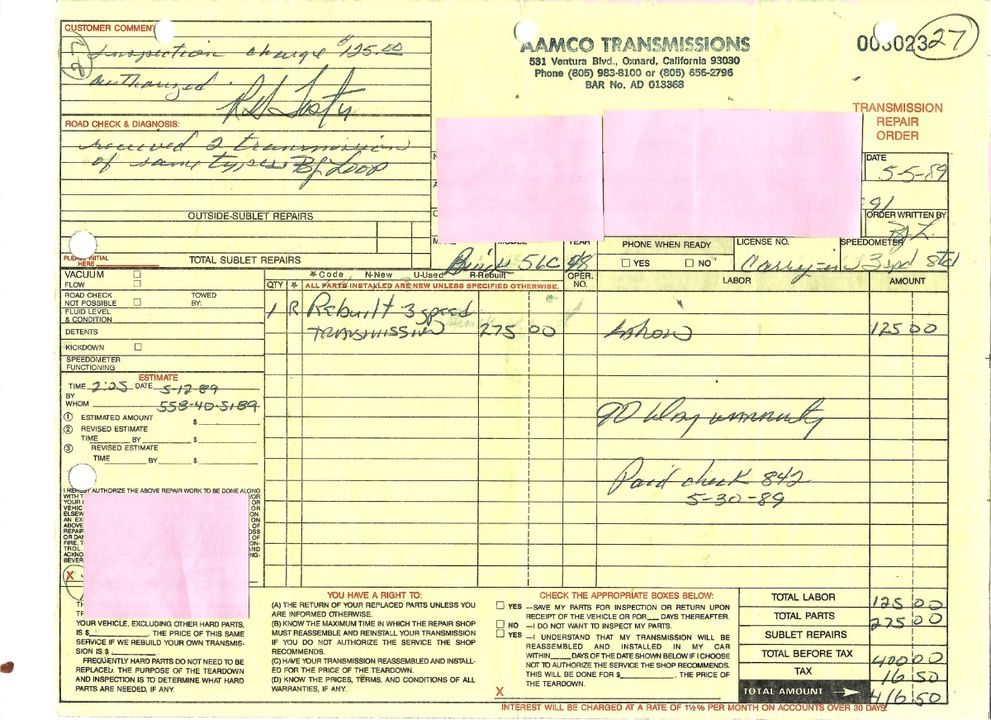 CUSTOMER COMMENT
Inspection charge $125.00
authorized
27
ROAD CHECK & DIAGNOSIS:
received 2 transmission
of same type
OUTSIDE-SUBLET REPAIRS
PLEASE INITIAL
HERE
TOTAL SUBLET REPAIRS
AAMCO TRANSMISSIONS
531 Ventura Blvd., Oxnard, California 93030
Phone (805) 983-8100 or (805) 656-2796
BAR No. AD 013368
27
TRANSMISSION
REPAIR
ORDER
DATE
5-5-89
ORDER WRITTEN BY
MODEL
YEAR
PHONE WHEN READY
YES NO
LICENSE NO.
SPEEDOMETER
Buick 56C 58
Carry-in 3rd Std
VACUUM
FLOW
ROAD CHECK
NOT POSSIBLE
TOWED
BY:
FLUID LEVEL
& CONDITION
DETENTS
KICKDOWN
SPEEDOMETER
FUNCTIONING
ESTIMATE
TIME 2:25 DATE 5-12-89
BY
WHOM 558-40-5189
1 ESTIMATED AMOUNT $
2 REVISED ESTIMATE
TIME BY $
3 REVISED ESTIMATE
TIME BY $
*Code N-New U-Used R-Rebuilt
QTY * ALL PARTS INSTALLED ARE NEW UNLESS SPECIFIED OTHERWISE.
OPER.
NO.
LABOR
AMOUNT
1 R Rebuilt 3 speed
TRANSMISSION 275 00
Labor 125 00
90 Day warranty
Paid check 842
5-30-89
I HEREBY AUTHORIZE THE ABOVE REPAIR WORK TO BE DONE ALONG
X
YOUR VEHICLE, EXCLUDING OTHER HARD PARTS,
IS $ . THE PRICE OF THIS SAME
SERVICE IF WE REBUILD YOUR OWN TRANSMIS-
SION IS $ .
FREQUENTLY HARD PARTS DO NOT NEED TO BE
REPLACED. THE PURPOSE OF THE TEARDOWN
AND INSPECTION IS TO DETERMINE WHAT HARD
PARTS ARE NEEDED, IF ANY.
YOU HAVE A RIGHT TO:
(A) THE RETURN OF YOUR REPLACED PARTS UNLESS YOU
ARE INFORMED OTHERWISE.
(B) KNOW THE MAXIMUM TIME IN WHICH THE REPAIR SHOP
MUST REASSEMBLE AND REINSTALL YOUR TRANSMISSION
IF YOU DO NOT AUTHORIZE THE SERVICE THE SHOP
RECOMMENDS.
(C) HAVE YOUR TRANSMISSION REASSEMBLED AND INSTALL-
ED FOR THE PRICE OF THE TEARDOWN.
(D) KNOW THE PRICES, TERMS, AND CONDITIONS OF ALL
WARRANTIES, IF ANY.
CHECK THE APPROPRIATE BOXES BELOW:
YES —SAVE MY PARTS FOR INSPECTION OR RETURN UPON
RECEIPT OF THE VEHICLE OR FOR DAYS THEREAFTER.
NO —I DO NOT WANT TO INSPECT MY PARTS.
YES —I UNDERSTAND THAT MY TRANSMISSION WILL BE
REASSEMBLED AND INSTALLED IN MY CAR
WITHIN DAYS OF THE DATE SHOWN BELOW IF I CHOOSE
NOT TO AUTHORIZE THE SERVICE THE SHOP RECOMMENDS.
THIS WILL BE DONE FOR $ , THE PRICE OF
THE TEARDOWN.
X
TOTAL LABOR 125 00
TOTAL PARTS 275 00
SUBLET REPAIRS
TOTAL BEFORE TAX 400 00
TAX 16 50
TOTAL AMOUNT 416 50
INTEREST WILL BE CHARGED AT A RATE OF 1½% PER MONTH ON ACCOUNTS OVER 30 DAYS.